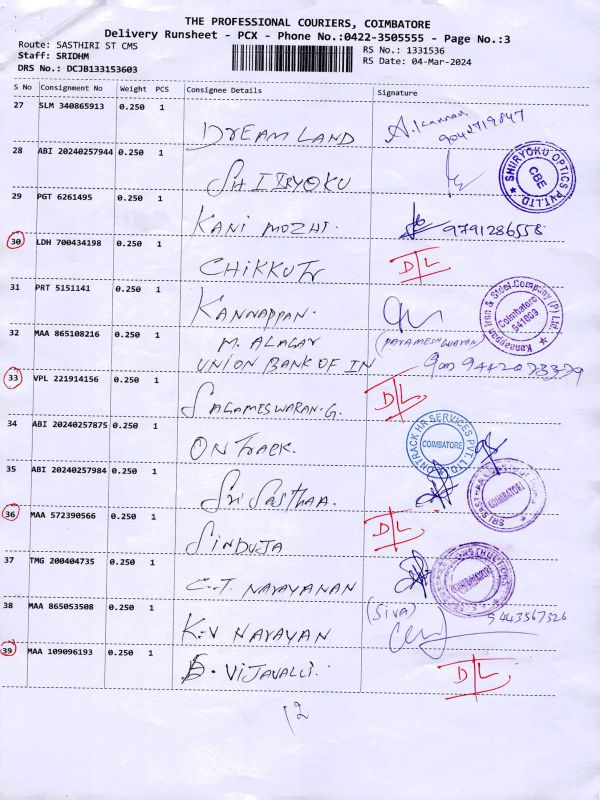 THE PROFESSIONAL COURIERS, COIMBATORE
Delivery Runsheet - PCX - Phone No.:0422-3505555 - Page No.:3
Route: SASTHIRI ST CMS
RS No.: 1331536
Staff: SRIDHM
RS Date: 04-Mar-2024
DRS No.: DCJB133153603
S No Consignment No Weight PCS Consignee Details Signature
27 SLM 340865913 0.250 1
DREAM LAND A. Kannan
9042719847
28 ABI 20240257944 0.250 1
SHIIRYOKU
SHIIRYOKU OPTICS PVT.LTD. CBE
29 PGT 6261495 0.250 1
KANI MOZHI. 9791286558
30 LDH 700434198 0.250 1
CHIKKU Tr D/L
31 PRT 5151141 0.250 1
KANNAPPAN.
Kannappan Iron & Steel Company (P) Ltd. Coimbatore 641003
32 MAA 865108216 0.250 1
M. ALAGAR (PARAMESHWARAN)
UNION BANK OF IN
33 VPL 221914156 0.250 1
SALAMESWARAN.G. D/L
34 ABI 20240257875 0.250 1
ON TRACK.
ONTRACK HR SERVICES PVT. LTD. COIMBATORE
35 ABI 20240257984 0.250 1
Sri Sasthaa.
COIMBATORE
36 MAA 572390566 0.250 1
SINDUJA D/L
37 TMG 200404735 0.250 1
C.T. NARAYANAN
COIMBATORE
38 MAA 865053508 0.250 1
(SIVA) 9443567326
K.V NARAYAN
39 MAA 109096193 0.250 1
B. VIJAVALLI. D/L
12